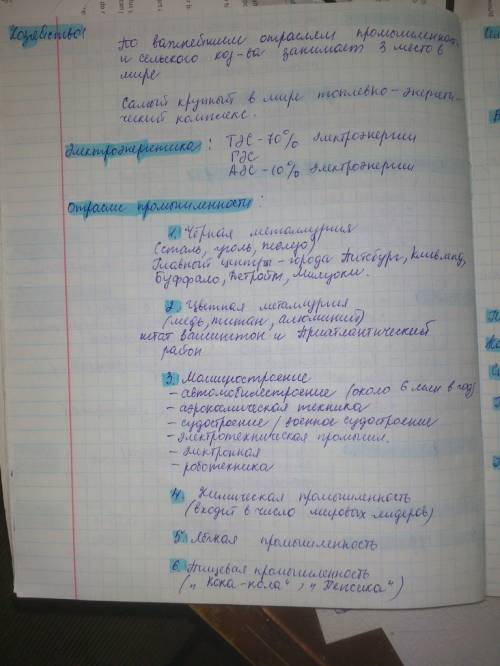 Хозяйство:
По важнейшим отраслям промышленнос.
и сельского хоз-ва занимает 3 место в
мире
Самый крупный в мире топлевно-энергети-
ческий комплекс.
Электроэнергетика: ТЭС-70% электроэнергии
ГЭС
АЭС-10% электроэнергии
Отрасли промышленности:
1. Чёрная металлургия
(сталь, уголь, железо)
Главный центры-города Питсбург, Кливленд,
Буффало, Детройт, Милуоки.
2. Цветная металлургия
(медь, титан, алюминий)
штат Вашингтон и Приатлантический
район
3. Машиностроение
- автомобилестроение (около 6 млн в год)
- аэрокосмическая техника
- судостроение / военное судостроение
- электротехническая промышл.
- электронная
- роботехника
4. Химическая промышленность
(входит в число мировых лидеров)
5. Лёгкая промышленность
6. Пищевая промышленность
(„Кока-кола", „Пепсика")